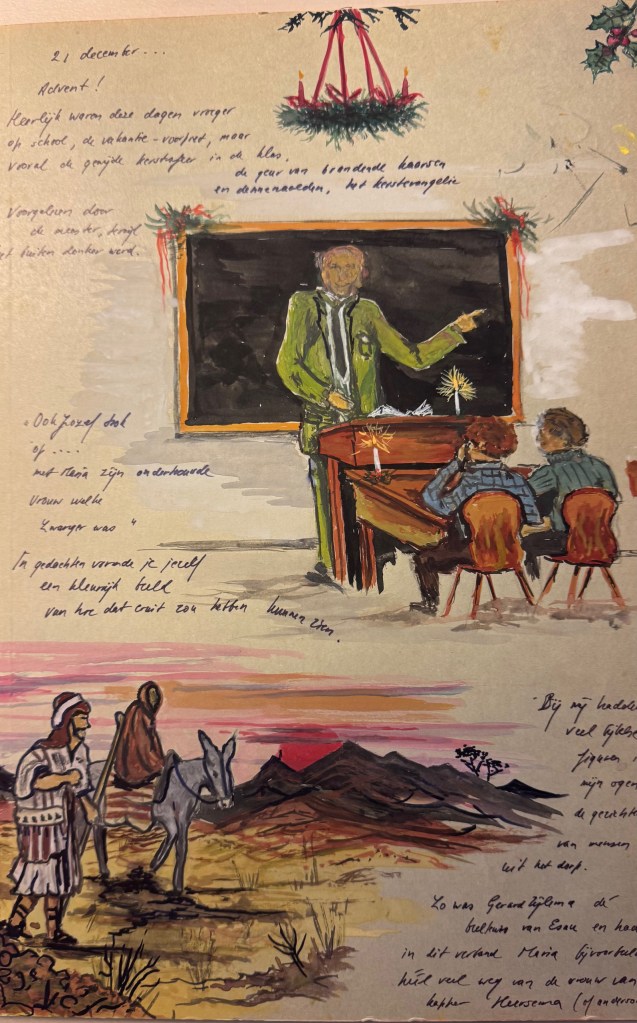 21 december...
Advent!
Heerlijk waren deze dagen vroeger
op school, de vakantie-voorpret, maar
vooral de gewijde kerstsfeer in de klas.
de geur van brandende kaarsen
en dennenaalden, het kerstevangelie
Voorgelezen door
de meester, terwijl
het buiten donker werd.
"Ook Jozef trok
op ....
met Maria zijn ondertrouwde
vrouw welke
zwanger was"
In gedachten vormde je jezelf
een kleurrijk beeld
van hoe dat eruit zou hebben kunnen zien.
Bij mij hadden
veel bijbelse
figuren in
mijn ogen
de gezichten
van mensen
uit het dorp.
Zo was Gerard Zijlma dé
van Esau en had
in dit verband Maria bijvoorbeeld
héél veel weg van de vrouw van
kapper Heersema (of andersom